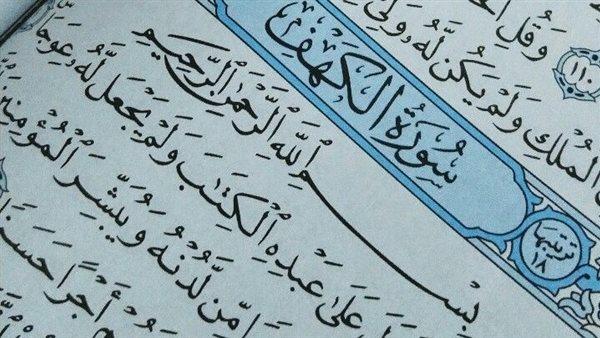 ١١٠ وَقُلِ
الْمُلْكِ وَلَمْ يَكُن لَّهُۥ وَلِىٌّ
سُورَةُ الكَهْفِ
ترتيبها ١٨
بِسْمِ اللَّهِ الرَّحْمَٰنِ الرَّحِيمِ
عَلَىٰ عَبْدِهِ الْكِتَٰبَ وَلَمْ يَجْعَل لَّهُۥ عِوَجَا
مِّن لَّدُنْهُ وَيُبَشِّرَ الْمُؤْمِنِينَ
أَجْرًا حَسَنًا